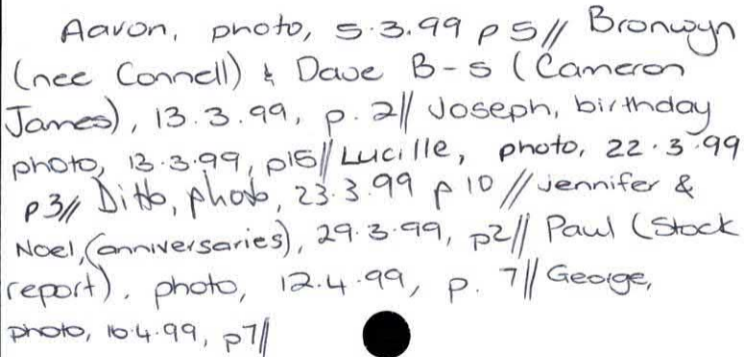 Aaron, photo, 5.3.99 p5// Bronwyn
(nee Connell) & Dave B-S (Cameron
James), 13.3.99, p.2// Joseph, birthday
photo, 13.3.99, p15// Lucille, photo, 22.3.99
p3// Ditto, photo, 23.3.99 p10 // Jennifer &
Noel, (anniversaries), 29.3.99, p2// Paul (Stock
report), photo, 12.4.99, p. 7// George,
photo, 16.4.99, p7//